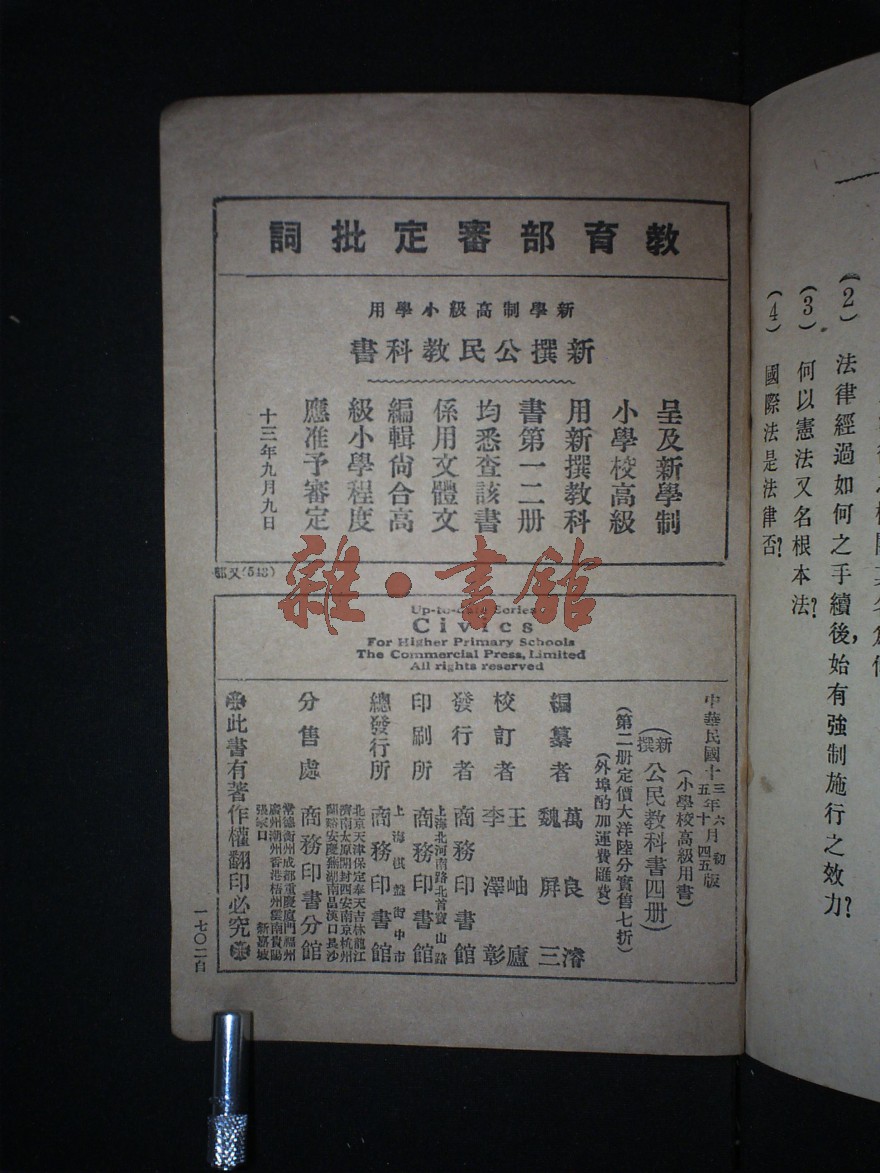 教育部審定批詞
新學制高級小學用
新撰公民教科書
呈及新學制
小學校高級
用新撰教科
書第一二册
均悉查該書
係用文體文
編輯尙合高
級小學程度
應准予審定
十三年九月九日
Up-to-date Series
Civics
For Higher Primary Schools
The Commercial Press, Limited
All rights reserved
中華民國十三年六月初版
五年十四五
(小學校高級用書)
(新撰)公民教科書四册)
(第二册定價大洋陸分實售七折)
(外埠酌加運費匯費)
編纂者 萬良濬 魏屏三
校訂者 王岫廬 李澤彰
發行者 商務印書館
上海北河南路北首寶山路
印刷所 商務印書館
上海棋盤街中市
總發行所 商務印書館
北京天津保定奉天吉林龍江
濟南太原開封西安南京杭州
蘭谿安慶蕪湖南昌漢口長沙
分售處 商務印書分館
常德衡州成都重慶廈門福州
廣州潮州香港梧州雲南貴陽
張家口 新嘉坡
此書有著作權翻印必究
一七〇二自
雜·書館
(2) 法律經過如何之手續後,始有強制施行之效力?
(3) 何以憲法又名根本法?
(4) 國際法是法律否?